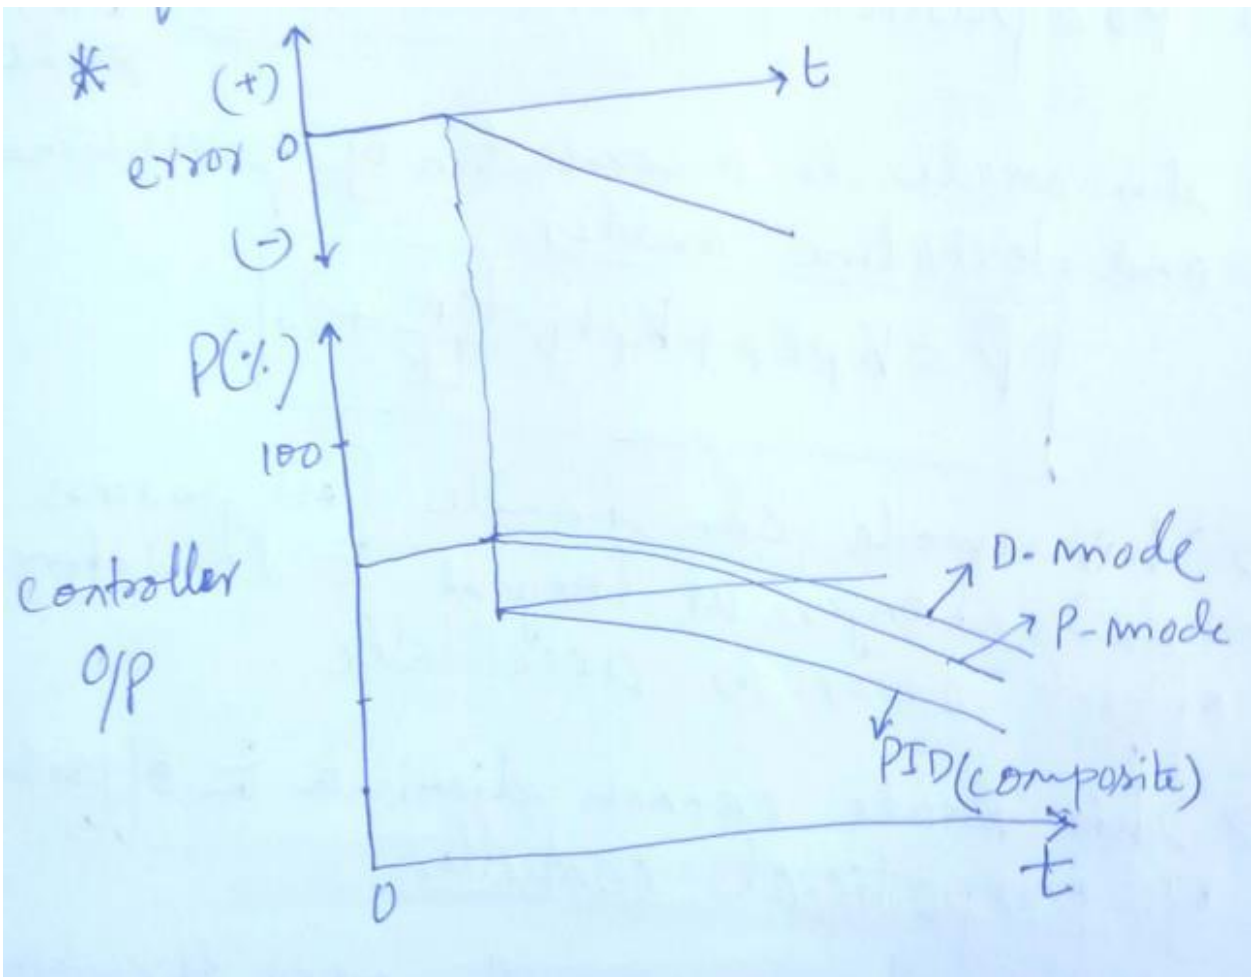 *
(+)
t
error 0
(-)
P(%)
100
controller
O/P
D-mode
P-mode
PID(composite)
0
t